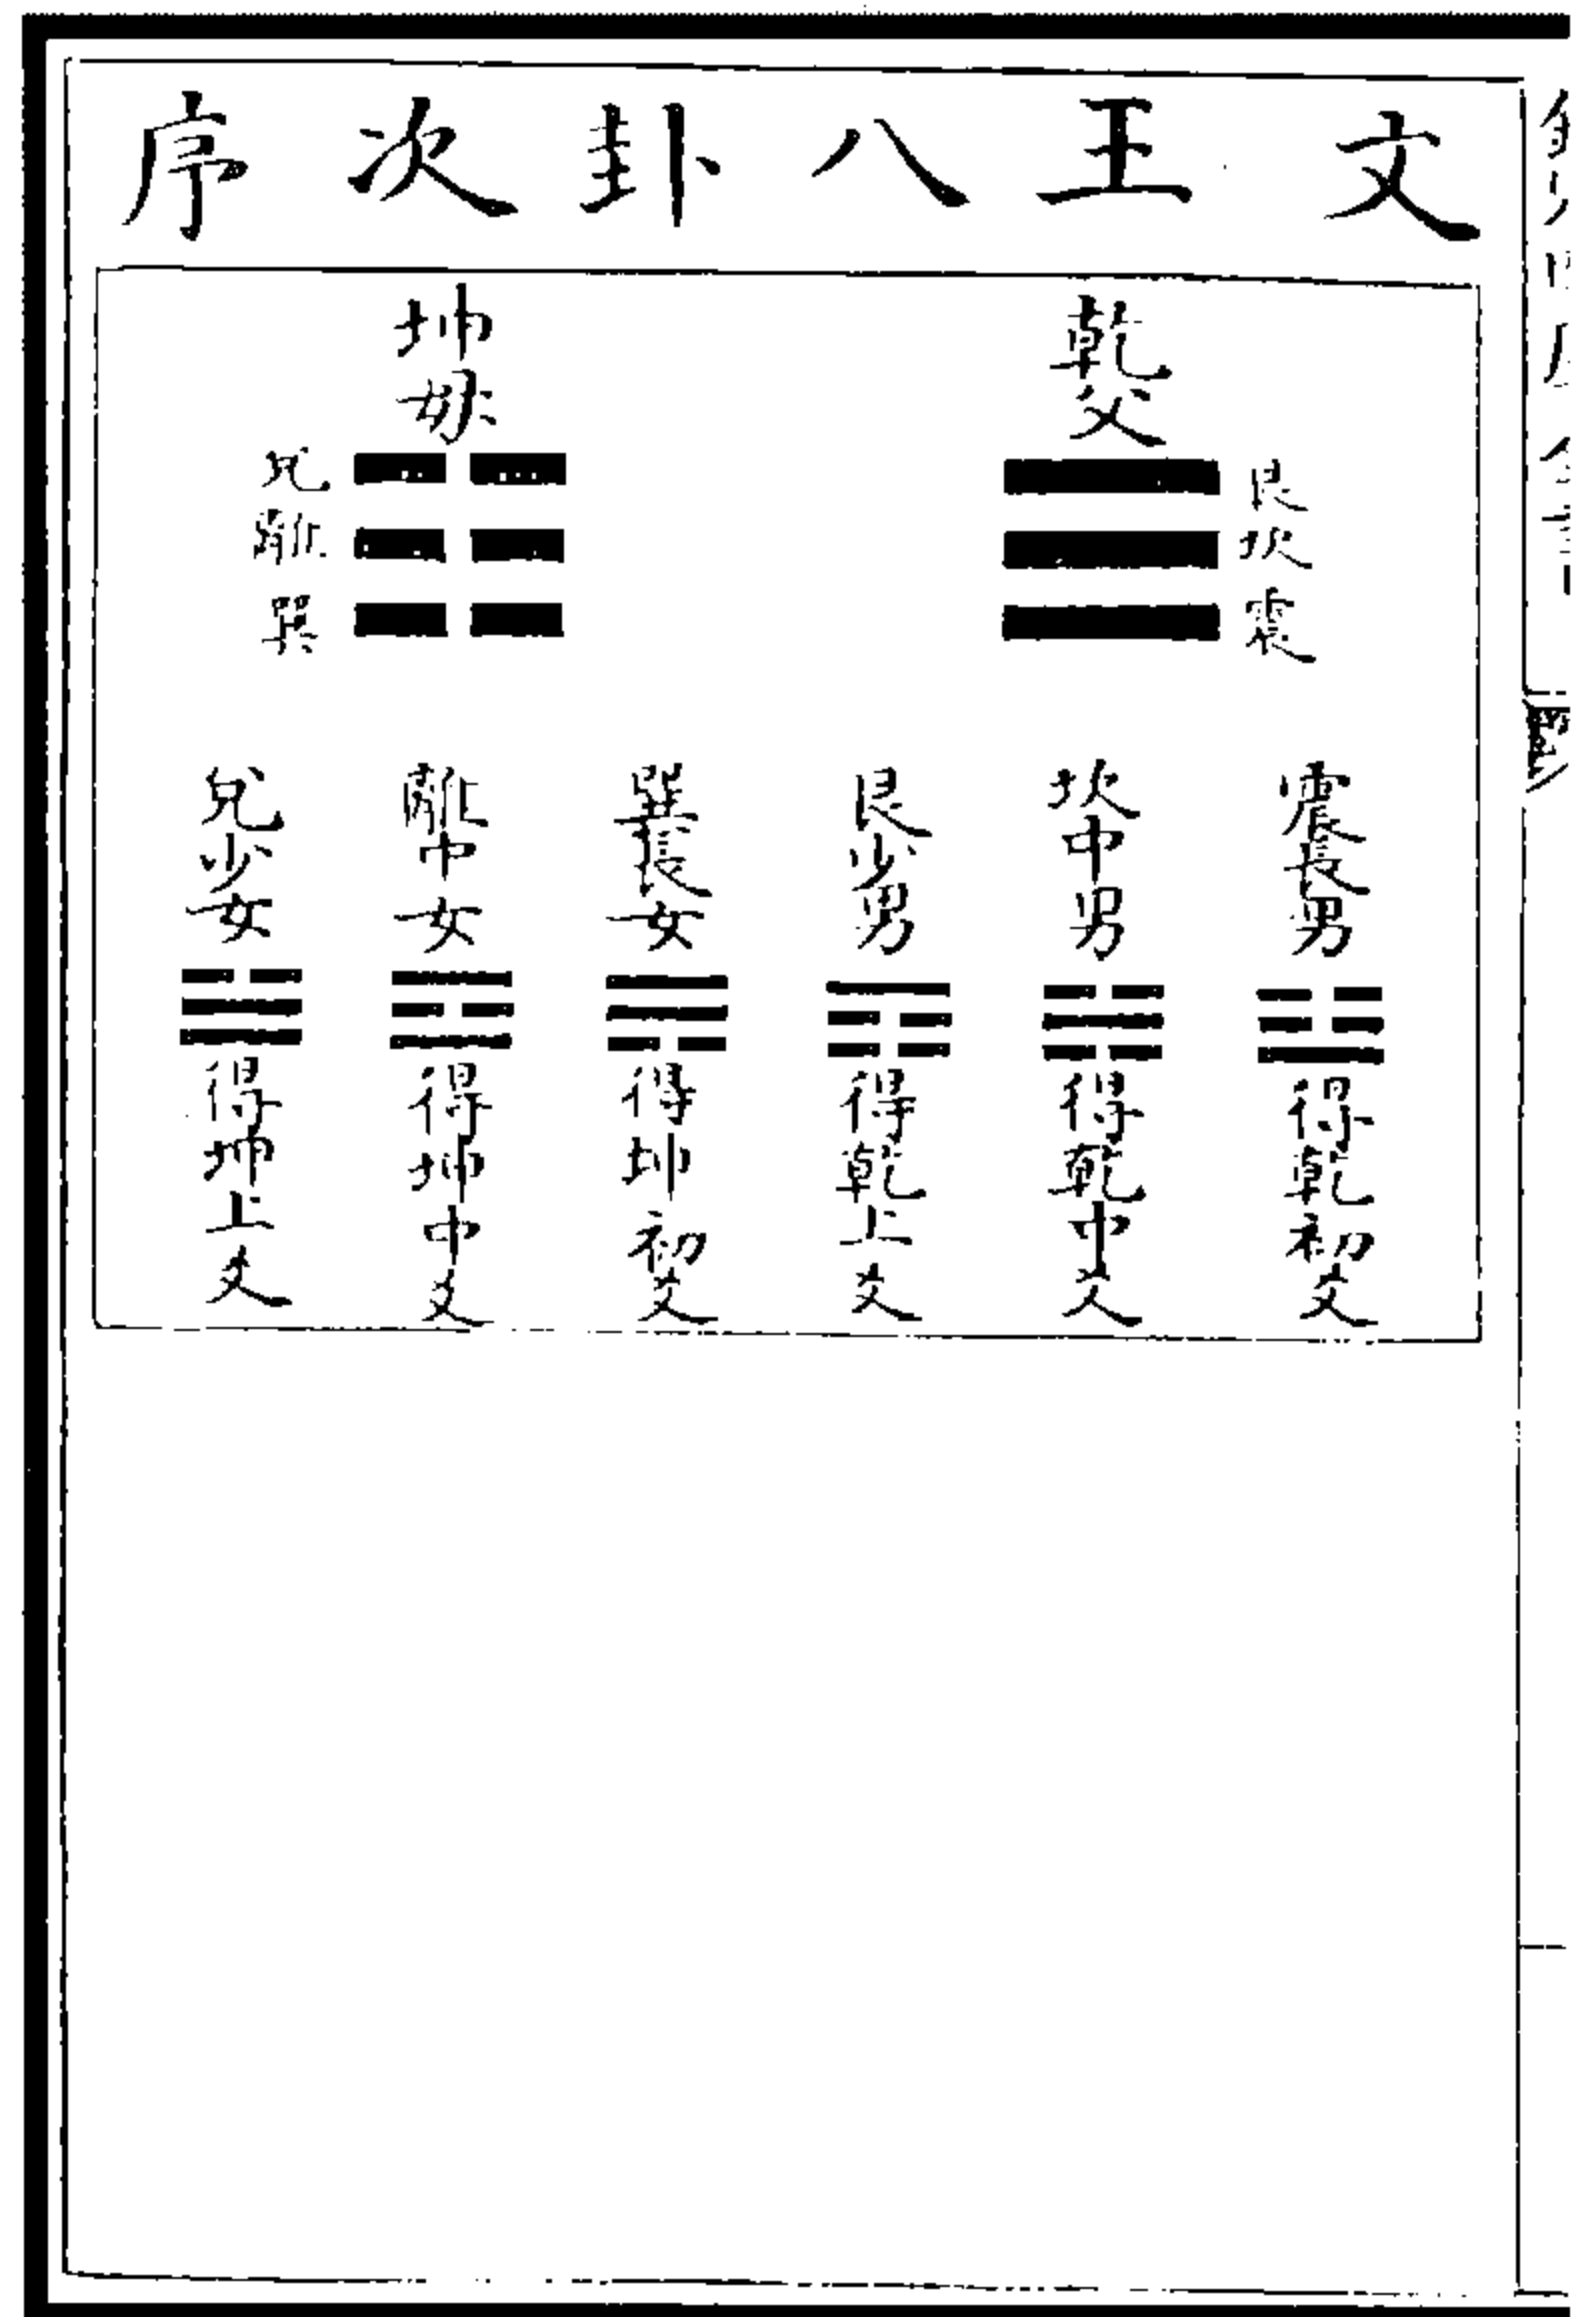 文王八卦次序
乾父
艮
坎
震
坤母
兌
離
巽
震長男
得乾初爻
坎中男
得乾中爻
艮少男
得乾上爻
巽長女
得坤初爻
離中女
得坤中爻
兌少女
得坤上爻